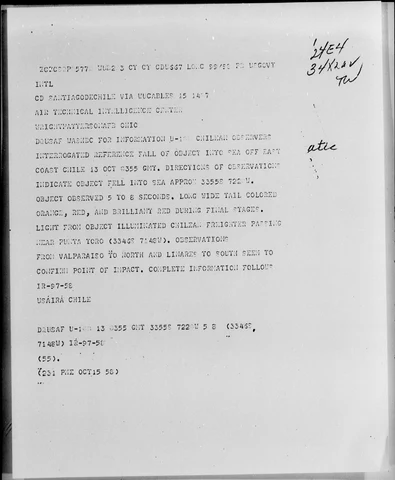 24E4
34X20V
INTL
CD SANTIAGODECHILE VIA WUCABLES 15 1447
AIR TECHNICAL INTELLIGENCE CENTER
WRIGHTPATTERSONAFB OHIO
DAUSAF WASHDC FOR INFORMATION CHILEAN OBSERVERS
atic
INTERROGATED REFERENCE FALL OF OBJECT INTO SEA OFF EAST
COAST CHILE 13 OCT 0355 GMT. DIRECTIONS OF OBSERVATIONS
INDICATE OBJECT FELL INTO SEA APPROX 3355S 7220W.
OBJECT OBSERVED 5 TO 8 SECONDS. LONG WIDE TAIL COLORED
ORANGE, RED, AND BRILLIANY RED DURING FINAL STAGES.
LIGHT FROM OBJECT ILLUMINATED CHILEAN FREIGHTER PASSING
NEAR PUNTA TORO (3346S 7148W). OBSERVATIONS
FROM VALPARAISO TO NORTH AND LINARES TO SOUTH SEEM TO
CONFIRM POINT OF IMPACT. COMPLETE INFORMATION FOLLOWS
IR-97-58
USAIRA CHILE
DAUSAF 13 0355 GMT 3355S 7220W 5 8 (3346S,
7148W) IR-97-58
(55).
(231 PME OCT15 58)